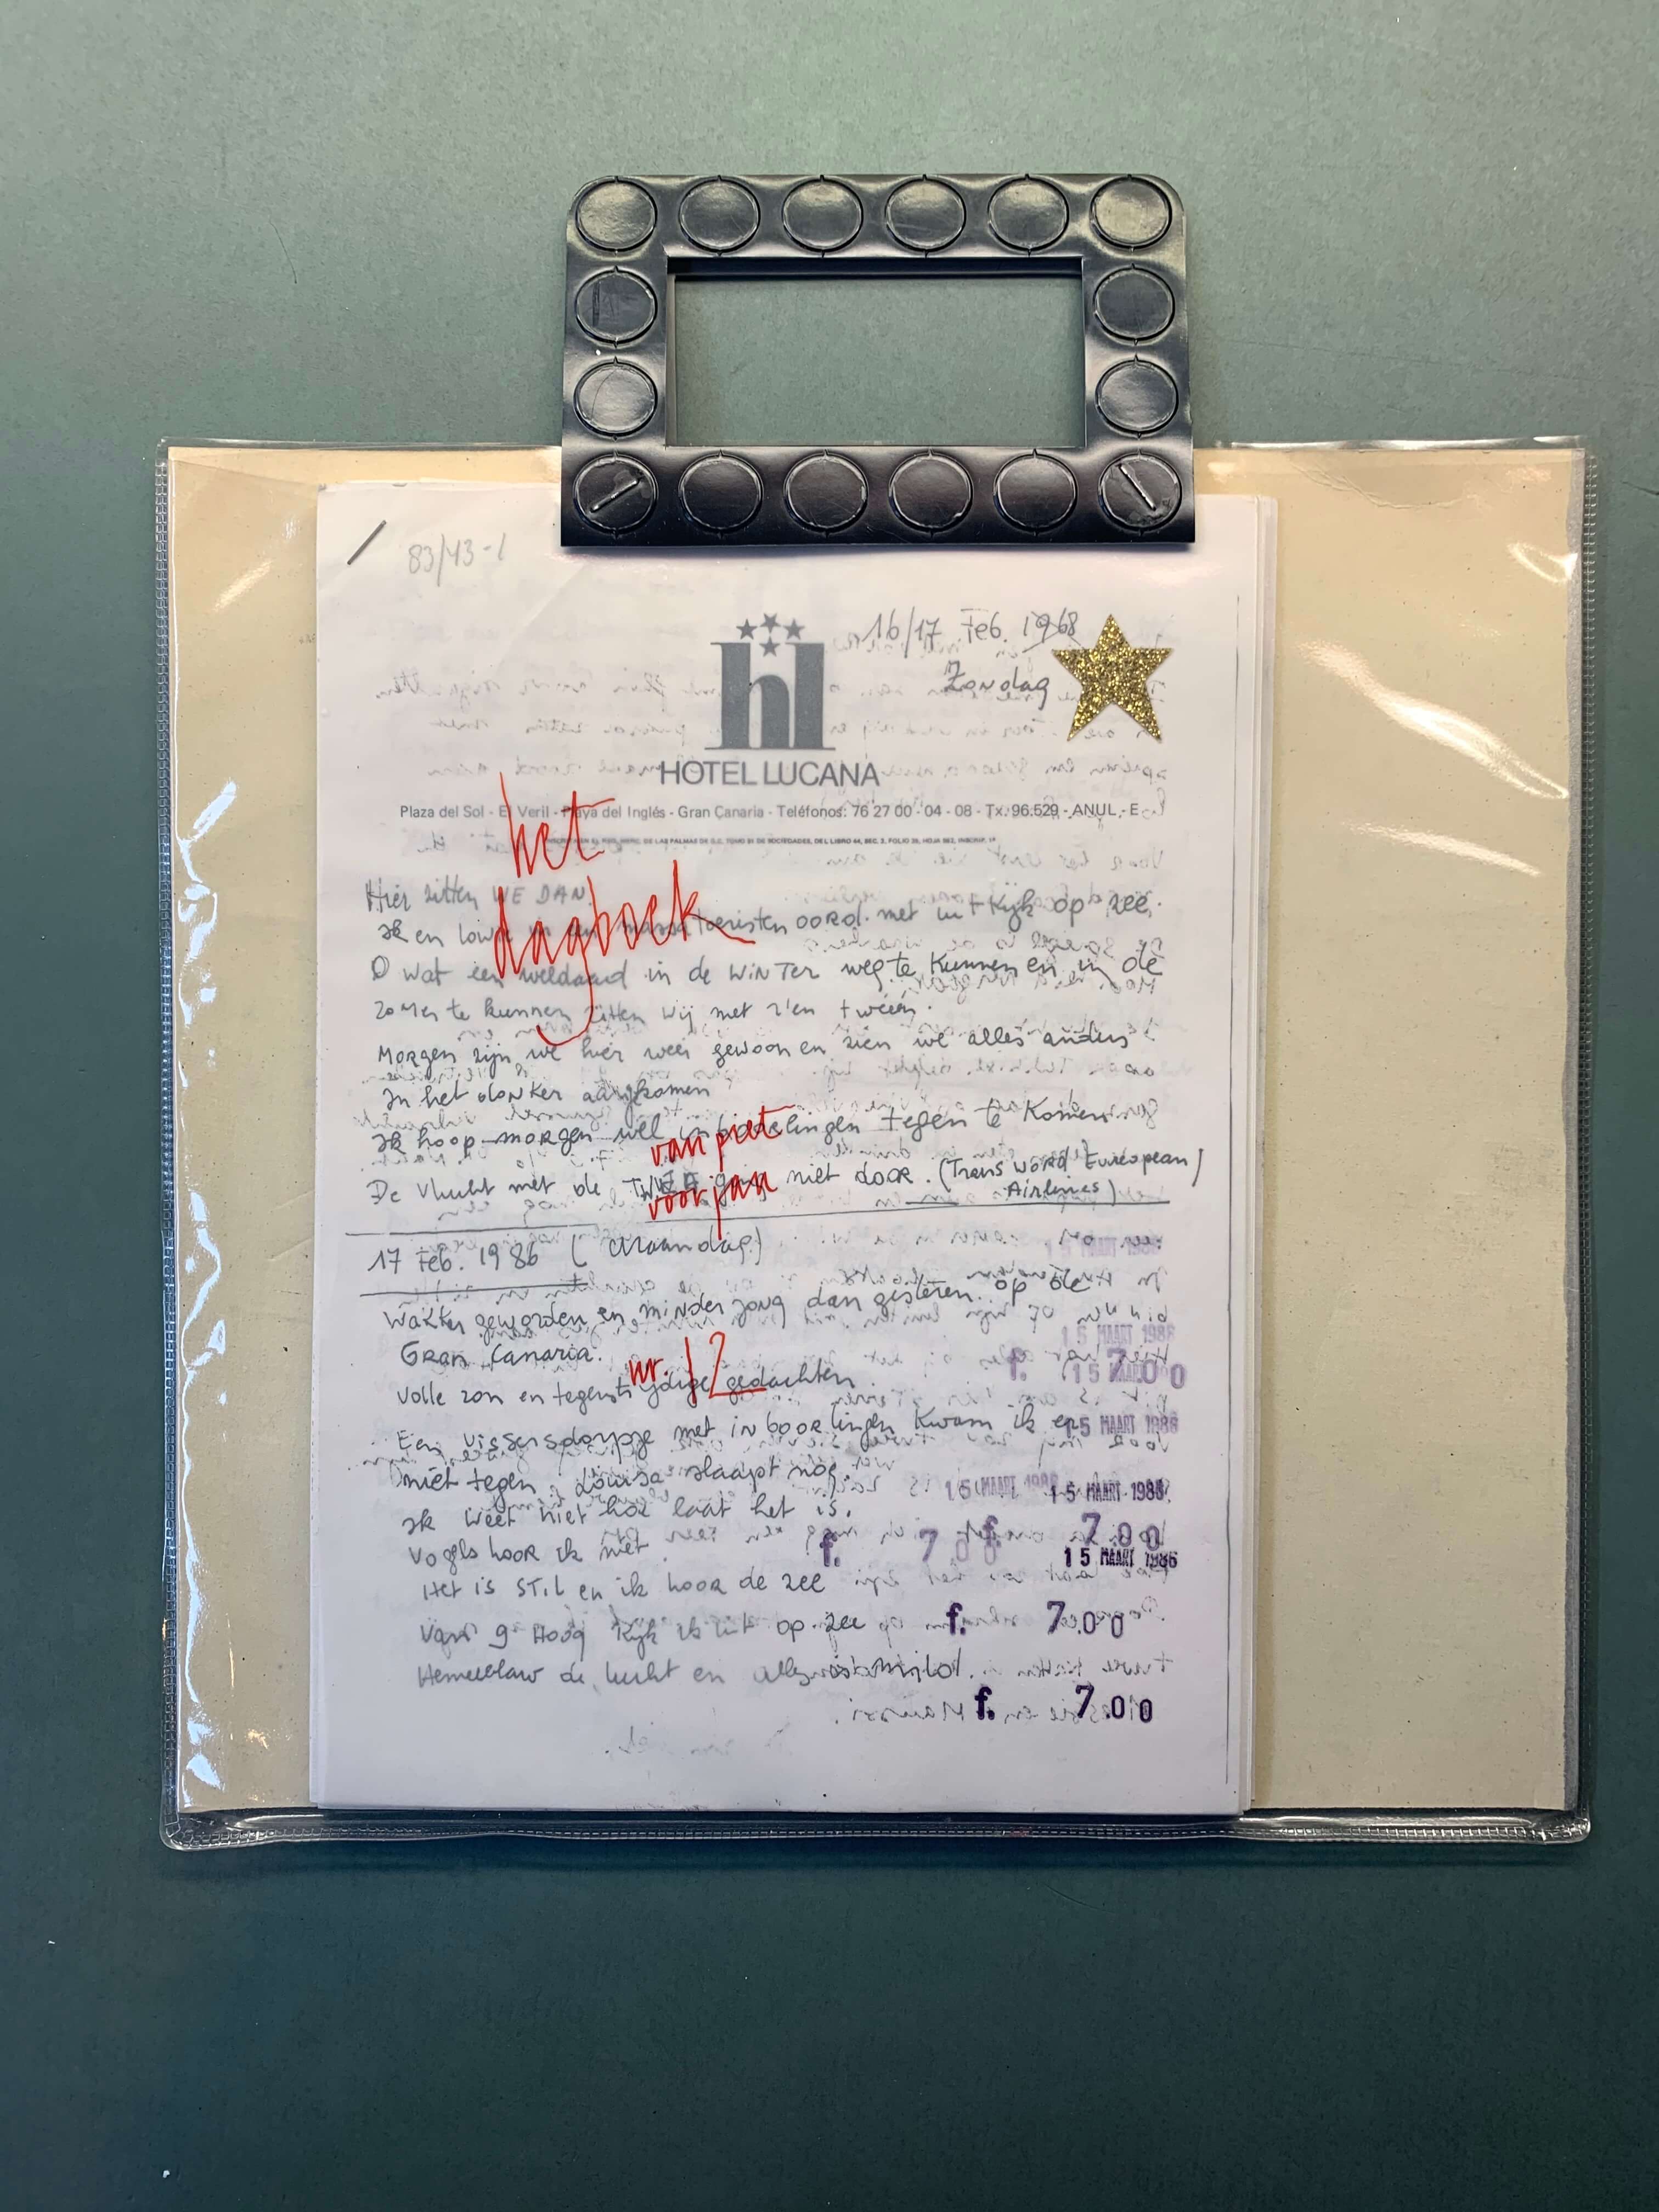 83/43-1
16/17 Feb. 1968
Zondag
hl
HOTEL LUCANA
Plaza del Sol - El Veril - Playa del Inglés - Gran Canaria - Teléfonos: 76 27 00 - 04 - 08 - Tx. 96.529 - ANUL - E
het
dagboek
Hier zitten WE DAN
ik en Lowie in een massa toeristen oord met uitkijk op zee.
O wat een weldaad in de WINTER weg te kunnen en in de
zomer te kunnen zitten wij met z'en tweeën.
Morgen zijn we hier weer gewoon en zien we alles anders
In het donker aangekomen
ik hoop morgen wel inboorlingen tegen te komen.
van piet
De vlucht met de TWEA ging niet door. (Trans World European
Airlines)
voor jan
17 Feb. 1986 (Maandag)
Wakker geworden en minder jong dan gisteren op de
Gran Canaria.
nr. 12
volle zon en tegenstrijdige gedachten.
Een vissersdorpje met inboorlingen kwam ik er
niet tegen. Louisa slaapt nog.
ik weet niet hoe laat het is.
Vogels hoor ik niet
Het is STIL en ik hoor de zee
Van 9 Hoog kijk ik uit op zee
Hemelblauw de lucht en alles is mild.
15 MAART 1986
f. 7.00
15 MAART 1986
15 MAART 1986
15 MAART 1986
f. 7.00
f. 7.00
15 MAART 1986
f. 7.00
f. 7.00